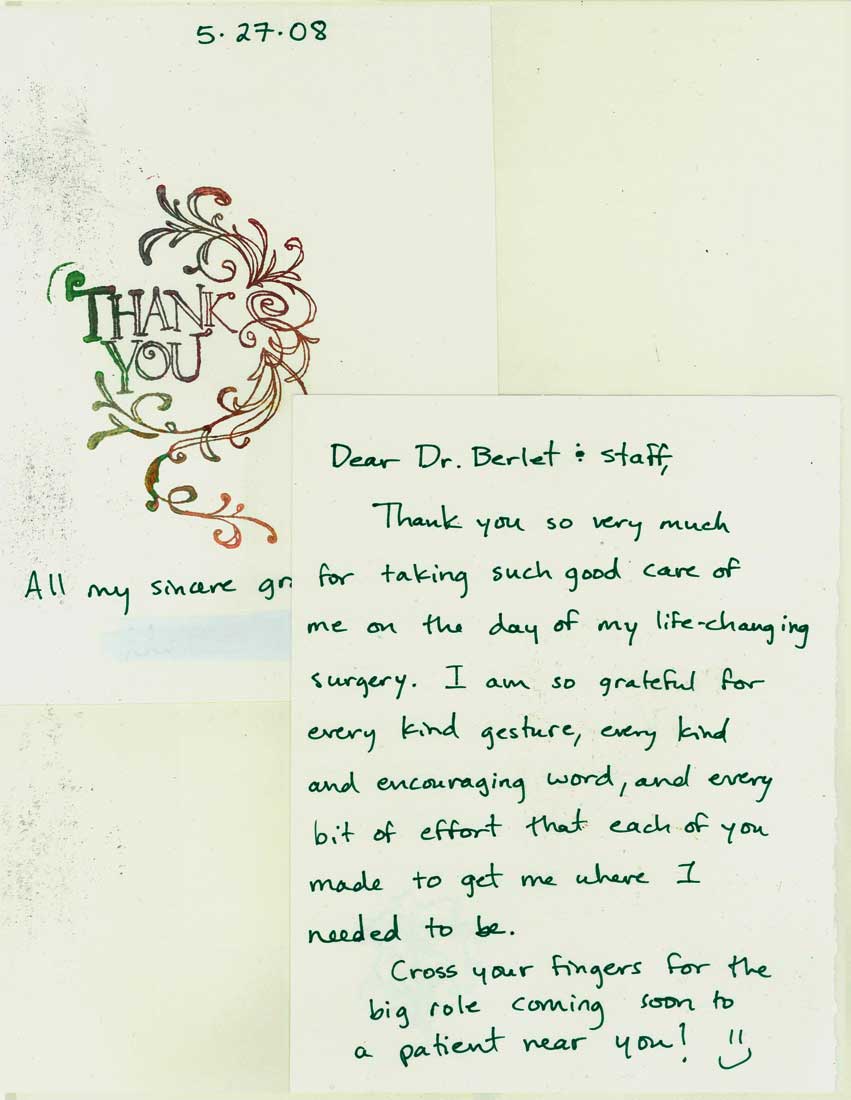 5.27.08
THANK
YOU
All my sincere gr
Dear Dr. Berlet & staff,
Thank you so very much
for taking such good care of
me on the day of my life-changing
surgery. I am so grateful for
every kind gesture, every kind
and encouraging word, and every
bit of effort that each of you
made to get me where I
needed to be.
Cross your fingers for the
big role coming soon to
a patient near you!